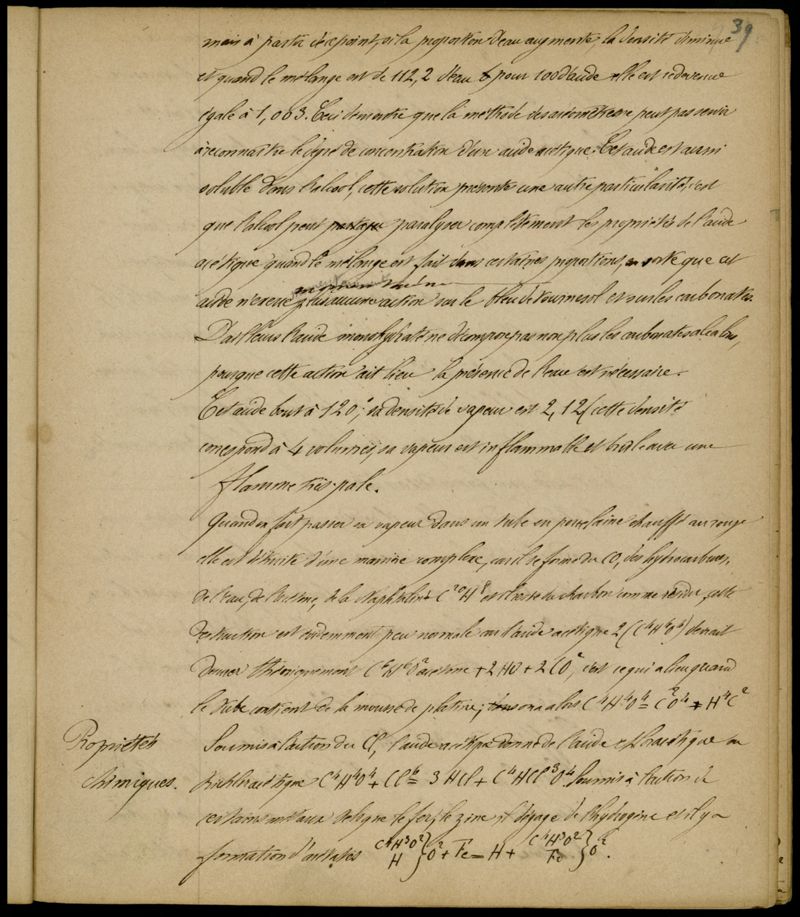 39
mais à partir de ce point, si la proportion d'eau augmente, la densité diminue
et quand le mélange est de 112,2 d'eau pour 100 d'acide elle est redevenue
égale à 1,063. Ceci démontre que la méthode des aréomètres ne peut pas servir
à reconnaître le degré de concentration d'un acide acétique. Cet acide est aussi
soluble dans l'alcool, cette solution présente une autre particularité, c'est
que l'alcool peut paralyser complètement les propriétés de l'acide
acétique quand le mélange est fait dans certaines proportions, en sorte que cet
acide n'exerce plus aucune action sur le bleu de tournesol et sur les carbonates.
D'ailleurs l'acide monohydraté ne décompose pas non plus les carbonates alcalins,
pour que cette action ait lieu la présence de l'eau est nécessaire.
Cet acide bout à 120°, sa densité de vapeur est 2,12 (cette densité
correspond à 4 volumes) sa vapeur est inflammable et brûle avec une
flamme très pâle.
Quand on fait passer sa vapeur dans un tube en porcelaine chauffé au rouge
elle est détruite d'une manière complexe, car il se forme du CO, des hydrocarbures,
de l'eau, de l'acétone, de la naphtaline C²⁰H⁸ et il reste du charbon comme résidu, cette
destruction est évidemment peu normale car l'acide acétique 2(C⁴H⁴O⁴) devrait
donner théoriquement C⁶H⁶O² acétone + 2HO + 2CO², c'est ce qui a lieu quand
le tube contient de la mousse de platine; on a alors C⁴H⁴O⁴ = C²O⁴ + H⁴C²
Propriétés
chimiques.
Soumis à l'action du Cl, l'acide acétique donne de l'acide chloracétique ou
trichloracétique C⁴H⁴O⁴ + Cl⁶ = 3HCl + C⁴HCl³O⁴. Soumis à l'action de
certains métaux tels que le fer, le zinc, il dégage de l'hydrogène et il y a
formation d'acétates C⁴H³O² H } O² + Fe = H + C⁴H³O² Fe } O².